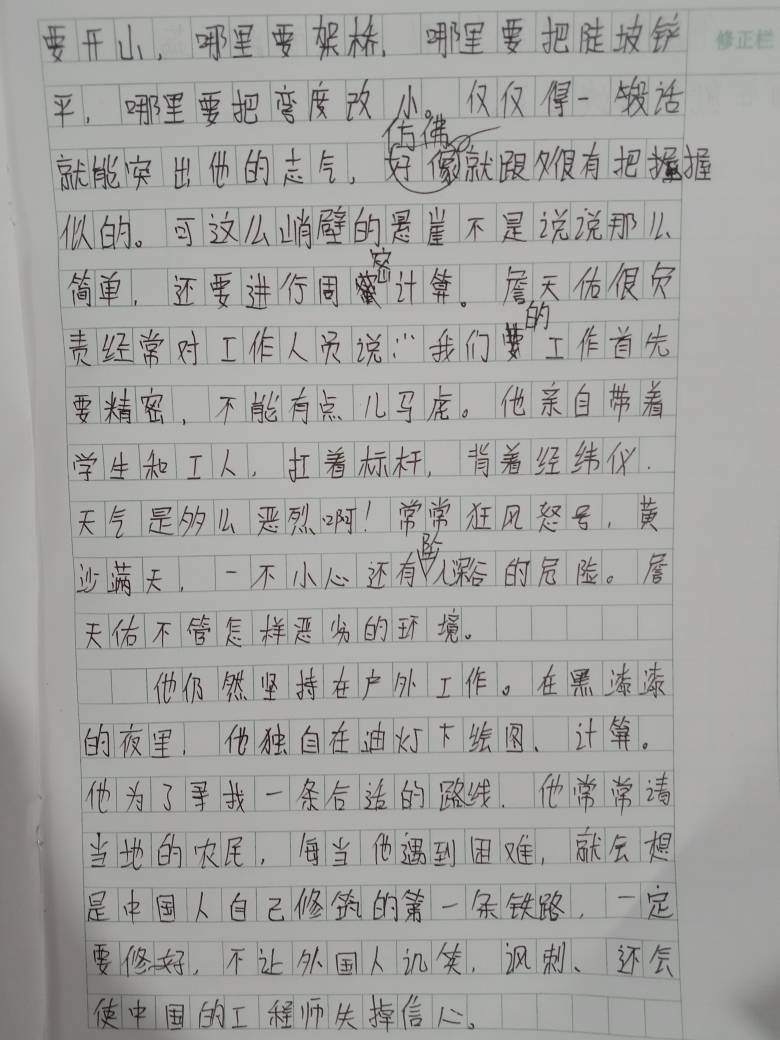 要开山，哪里要架桥，哪里要把陡坡铲
修正栏
平，哪里要把弯度改小。仅仅得一锻话
就能突出他的志气，仿佛就跟很有把握
似的。可这么峭壁的悬崖不是说说那么
简单，还要进行周密计算。詹天佑很负
责经常对工作人员说：“我们的工作首先
要精密，不能有点儿马虎。他亲自带着
学生和工人，扛着标杆，背着经纬仪.
天气是多么恶烈啊！常常狂风怒号，黄
沙满天，一不小心还有坠入深谷的危险。詹
天佑不管怎样恶劣的环境。
他仍然坚持在户外工作。在黑漆漆
的夜里，他独自在油灯下绘图、计算。
他为了寻找一条合适的路线，他常常请
当地的农民，每当他遇到困难，就会想
是中国人自己修筑的第一条铁路，一定
要修好，不让外国人讥笑，讽刺、还会
使中国的工程师失掉信心。